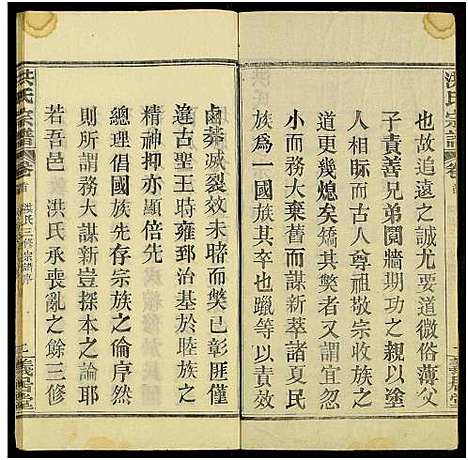 洪氏宗譜
卷首
也故追遠之誠尤要道微俗薄父
子責善兄弟鬩牆期功之親以塗
人相眎而古人尊祖敬宗收族之
道更幾熄矣其獘者又謂宜忽
小而務大棄舊而謀新萃諸夏民
族爲一國族其卒也躐等欲速
鹵莾滅裂效未睹而獘已彰匪僅
違古聖王時雍郅治基於睦族之
精神抑亦顯倍先
總理倡國族先存宗族之倫序然
則所謂務大謀新豈探本之論耶
若吾邑 洪氏承喪亂之餘三修
洪氏宗譜
卷首
洪氏三修宗譜序
二
義居堂